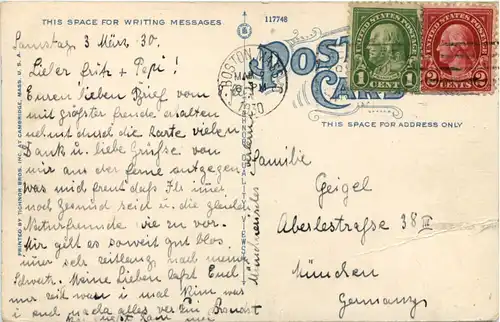 THIS SPACE FOR WRITING MESSAGES
117748
Samstag 3 März 30.
Lieber Fritz + Pepi!
Euren lieben Brief vom
mit größter Freude erhalten
nehmt durch die Karte vielen
Dank u. liebe Grüße von
mir aus der ferne entgegen
was mich freut daß Ihr
noch Gesund seid u. die gleichen
Naturfreunde wie zu vor.
Mir geht es soweit gut blos
sehr zeitlang nach meiner
Schweiz. Meine Lieben laßt Euch
nur Zeit wann i mal Kim was
i euch alles
PRINTED BY TICHNOR BROS. INC. AT CAMBRIDGE, MASS. U. S. A.
POST CARD
BOSTON MASS.
1930
UNITED STATES POSTAGE
1 CENT 1
UNITED STATES POSTAGE
2 CENTS 2
THIS SPACE FOR ADDRESS ONLY
Familie
Geigel
Aberlestraße 38 III
München
Germany